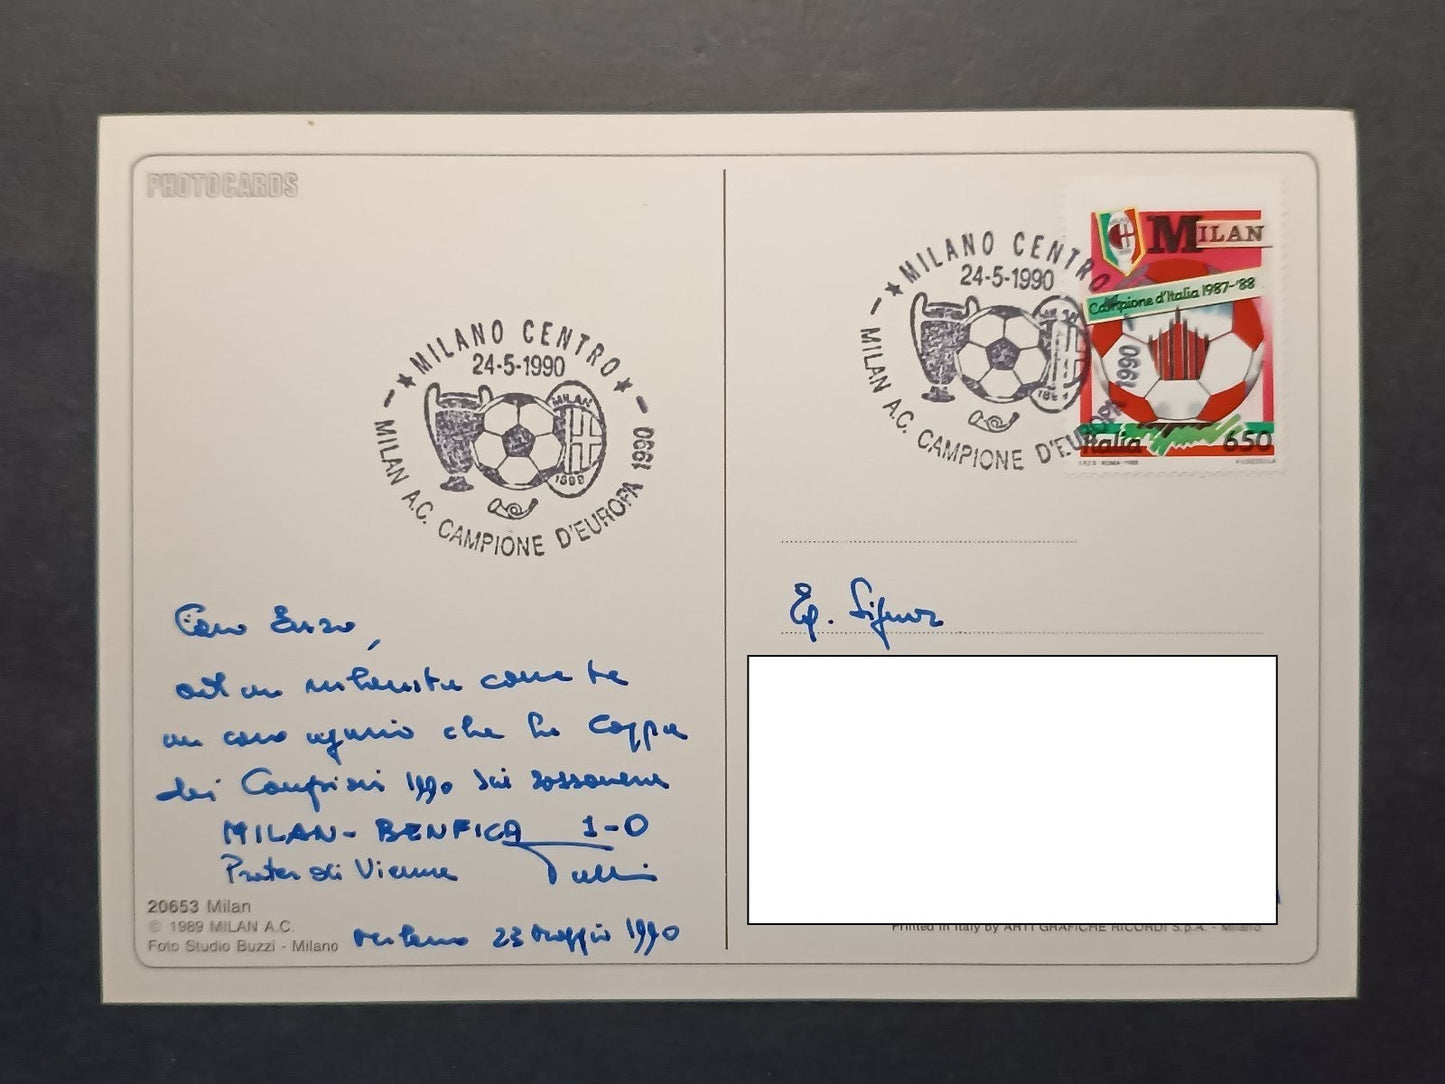 PHOTOCARDS
★ MILANO CENTRO ★
24-5-1990
MILAN
1899
MILAN A.C. CAMPIONE D'EUROPA 1990
Caro Enzo,
ad un milanista come te
un caro augurio che la Coppa
dei Campioni 1990 sia rossonera
MILAN - BENFICA 1-0
Prater di Vienna
Milano 23 maggio 1990
20653 Milan
© 1989 MILAN A.C.
Foto Studio Buzzi - Milano
★ MILANO CENTRO
24-5-1990
MILAN A.C. CAMPIONE D'EUROPA 1990
MILAN
Campione d'Italia 1987-'88
Italia 650
I.P.Z.S. ROMA - 1988
Eg. Signor
Printed in Italy by ARTI GRAFICHE RICORDI S.p.A. - Milano